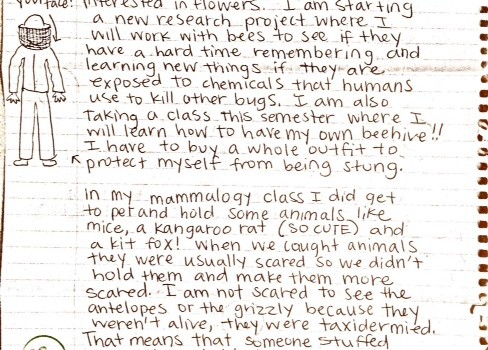 your face! interested in flowers. I am starting
a new research project where I
will work with bees to see if they
have a hard time remembering and
learning new things if they are
exposed to chemicals that humans
use to kill other bugs. I am also
taking a class this semester where I
will learn how to have my own beehive!!
I have to buy a whole outfit to
protect myself from being stung.
in my mammalogy class I did get
to pet and hold some animals like
mice, a kangaroo rat (SO CUTE) and
a kit fox! When we caught animals
they were usually scared so we didn't
hold them and make them more
scared. I am not scared to see the
antelopes or the grizzly because they
weren't alive, they were taxidermied.
That means that someone stuffed